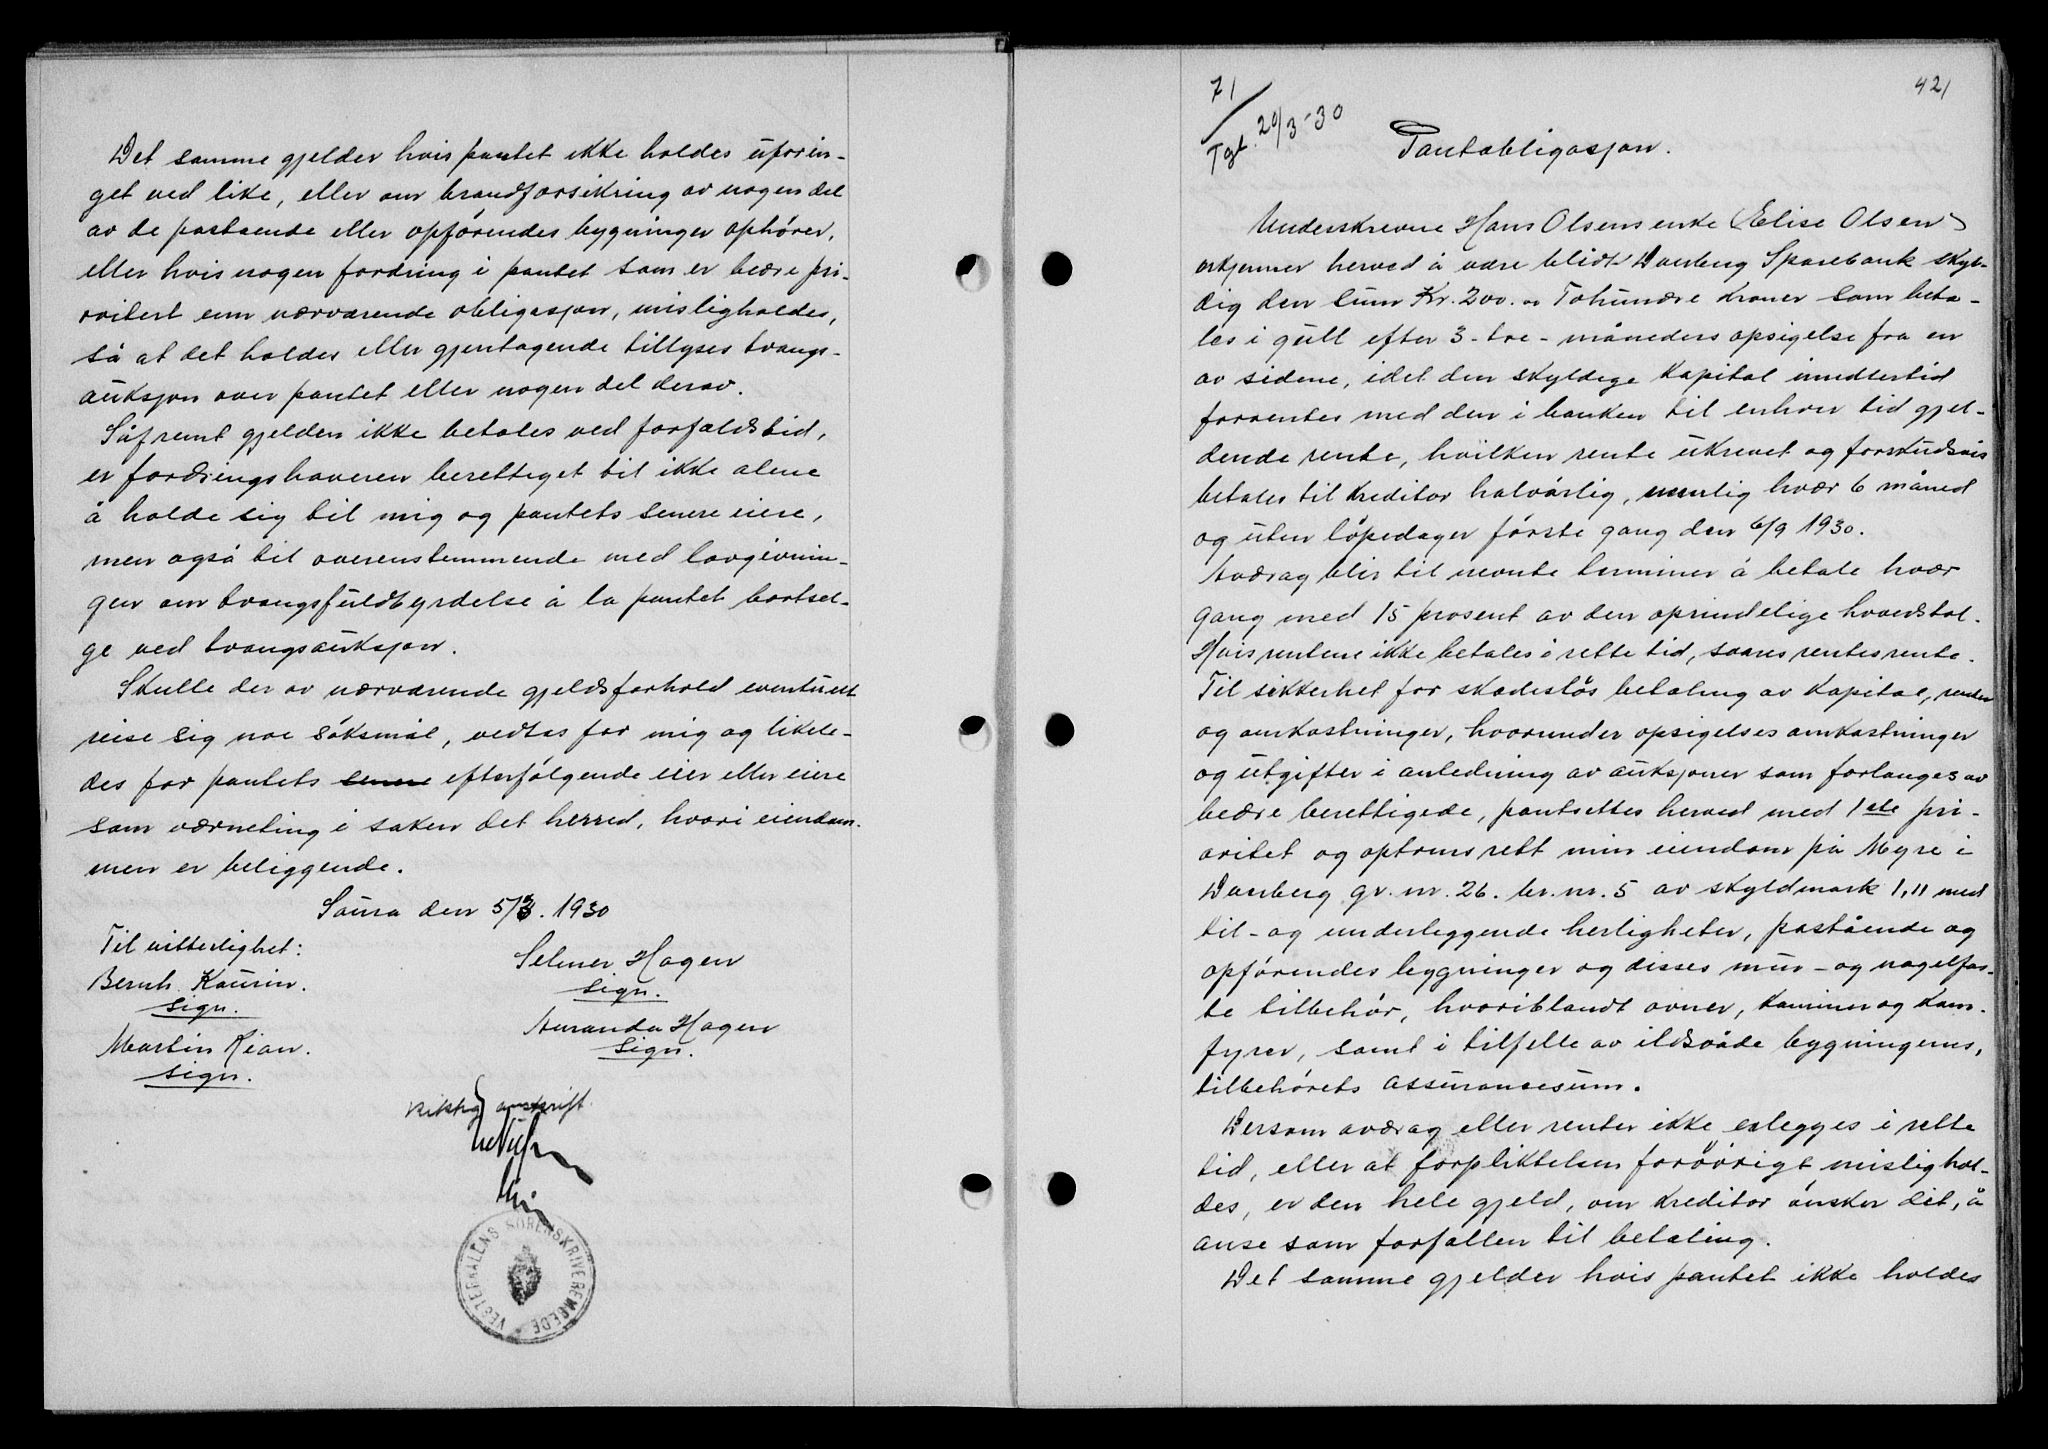 Det samme gjelder hvis pantet ikke holdes uforin-
get ved like, eller om brandforsikring av nogen del
av de påståaende eller opførendes bygninger ophører,
eller hvis nogen fordring i pantet som er bedre pri-
oritert enn nærværende obligasjon, misligholdes,
så at det holdes eller gjentagende tillyses tvangs-
auksjon over pantet eller nogen del derav.
Såfremt gjelden ikke betales ved forfaldstid,
er fordringshaveren berettiget til ikke alene
å holde sig til mig og pantets senere eiere,
men også til overensstemmende med lovgivnin-
gen om tvangsfuldbyrdelse å la pantet bortsel-
ge ved tvangsauksjon.
Skulle der av nærværende gjeldsforhold eventuelt
reise sig noe söksmål, vedtas for mig og likele-
des for pantets senere efterfølgende eier eller eiere
som værneting i saken det herred, hvori eiendom-
men er beliggende.
Saura den 5/3. 1930
Til vitterlighet:
Selmer Hagen
sign.
Bernh. Kaurin.
sign.
Amanda Hagen
sign.
Martin Kian.
sign.
Riktig avskrift.
VESTERÅLENS SORENSKRIVEREMBEDE
421
71
Tgl. 20/3-30
Pantobligasjon.
Underskrevne Hans Olsens enke (Elise Olsen)
erkjenner herved å være blidt Dverberg Sparebank skyl-
dig den sum Kr. 200.- Tohundre kroner som beta-
les i gull efter 3-tre-måneders opsigelse fra en
av sidene, idet den skyldige kapital imidlertid
forrentes med den i banken til enhver tid gjel-
dende rente, hvilken rente ukrevet og forskudsvis
betales til kreditor halvårlig, nemlig hvær 6 måned
og uten løpedager første gang den 6/9 1930.
Avdrag blir til nevnte terminer å betale hvær
gang med 15 prosent av den oprindelige hovedstol.
Hvis rentene ikke betales i rette tid, svares rentesrente.
Til sikkerhet for skadesløs betaling av kapital, renter
og omkostninger, hvorunder opsigelses omkostninger
og utgifter i anledning av auksjoner som forlanges av
bedre berettigede, pantsettes herved med 1ste pri-
oritet og optrinsrett min eiendom på Myre i
Dverberg gr. nr. 26. br. nr. 5 av skyldmark 1,11 med
til- og underliggende herligheter, påstående og
opførendes bygninger og disses mur- og nagelfas-
te tilbehør, hvoriblandt ovner, kaminer og kom-
fyrer, samt i tilfelle av ildsvåde bygningens,
tilbehørets assuransesum.
Dersom avdrag eller renter ikke erlegges i rette
tid, eller at forpliktelsen forøvrigt mislighol-
des, er den hele gjeld, om kreditor ønsker det, å
anse som forfallen til betaling.
Det samme gjelder hvis pantet ikke holdes